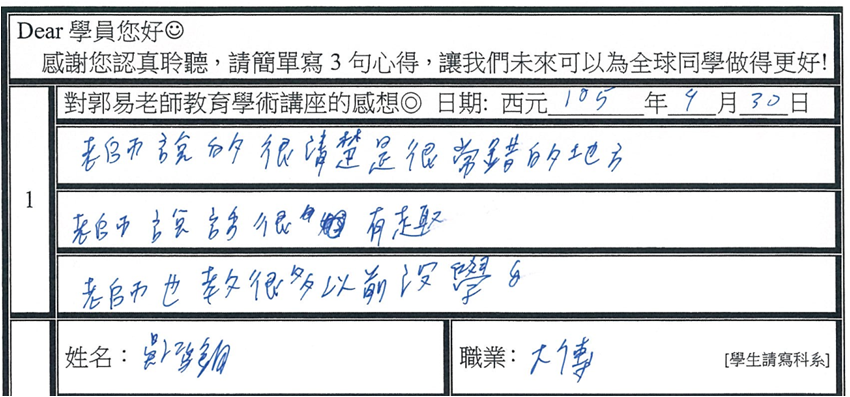 Dear 學員您好☺
感謝您認真聆聽，請簡單寫 3 句心得，讓我們未來可以為全球同學做得更好!
1
對郭易老師教育學術講座的感想◎ 日期: 西元 105 年 9 月 30 日
老師說的很清楚是很常錯的地方
老師說話很有趣
老師也教很多以前沒學
姓名：
職業： 大傳 [學生請寫科系]